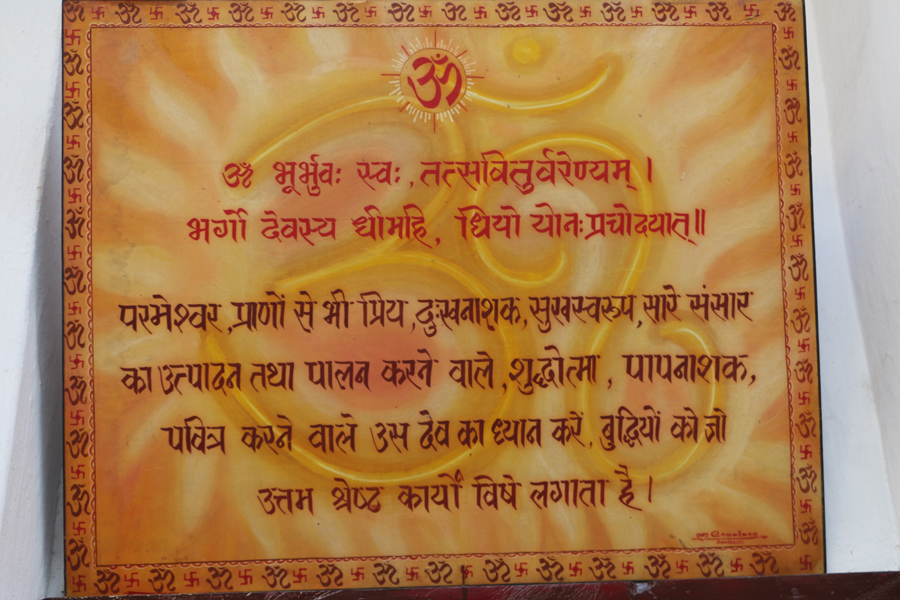 ॐ
ॐ भूर्भुवः स्वः, तत्सवितुर्वरेण्यम् ।
भर्गो देवस्य धीमहि, धियो योनः प्रचोदयात् ॥
परमेश्वर, प्राणों से भी प्रिय, दुःखनाशक, सुखस्वरूप, सारे संसार
का उत्पादन तथा पालन करने वाले, शुद्धोत्मा, पापनाशक,
पवित्र करने वाले उस देव का ध्यान करें, बुद्धियों को जो
उत्तम श्रेष्ठ कार्यों विषे लगाता है।